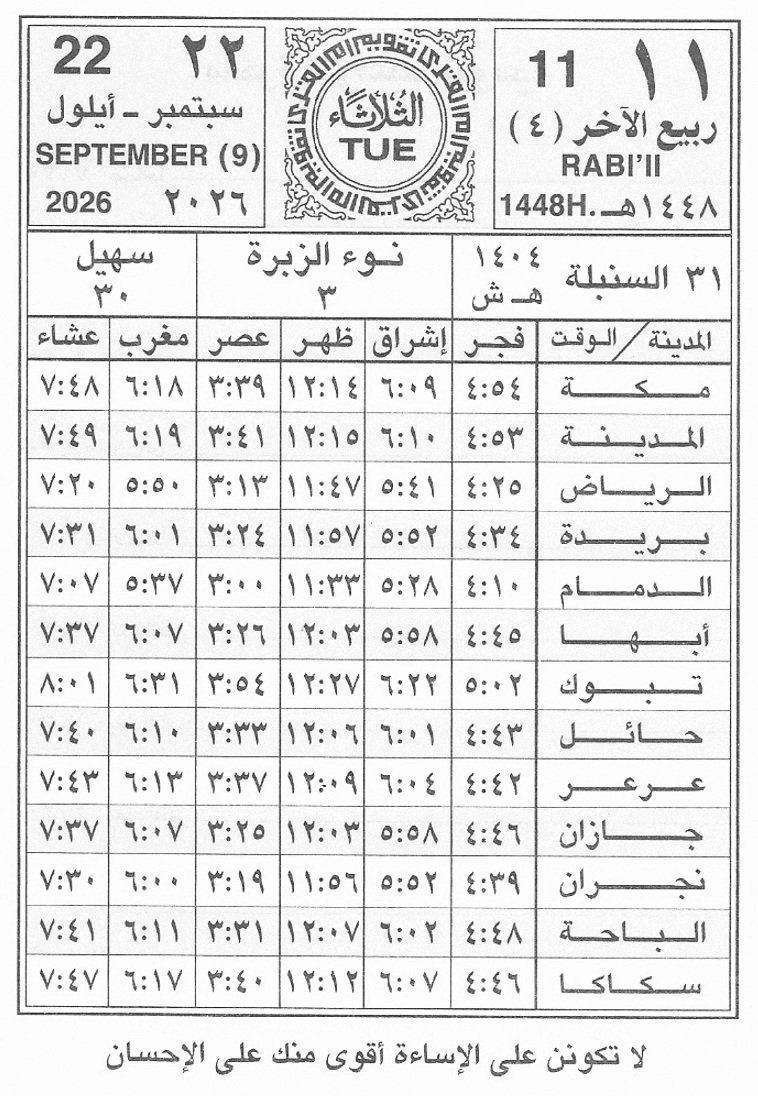 ١١ 11
ربيع الآخر (٤)
RABI'II
١٤٤٨هـ. 1448H
تقويم أم القرى
الثلاثاء
TUE
22 ٢٢
سبتمبر - أيلول
SEPTEMBER (9)
2026 ٢٠٢٦
٣١ السنبلة ١٤٠٤ هـ ش
نوء الزبرة ٣
سهيل ٣٠
المدينة / الوقت فجر إشراق ظهر عصر مغرب عشاء
مكة ٤:٥٤ ٦:٠٩ ١٢:١٤ ٣:٣٩ ٦:١٨ ٧:٤٨
المدينة ٤:٥٣ ٦:١٠ ١٢:١٥ ٣:٤١ ٦:١٩ ٧:٤٩
الرياض ٤:٢٥ ٥:٤١ ١١:٤٧ ٣:١٣ ٥:٥٠ ٧:٢٠
بريدة ٤:٣٤ ٥:٥٢ ١١:٥٧ ٣:٢٤ ٦:٠١ ٧:٣١
الدمام ٤:١٠ ٥:٢٨ ١١:٣٣ ٣:٠٠ ٥:٣٧ ٧:٠٧
أبها ٤:٤٥ ٥:٥٨ ١٢:٠٣ ٣:٢٦ ٦:٠٧ ٧:٣٧
تبوك ٥:٠٢ ٦:٢٢ ١٢:٢٧ ٣:٥٤ ٦:٣١ ٨:٠١
حائل ٤:٤٣ ٦:٠١ ١٢:٠٦ ٣:٣٣ ٦:١٠ ٧:٤٠
عرعر ٤:٤٢ ٦:٠٤ ١٢:٠٩ ٣:٣٧ ٦:١٣ ٧:٤٣
جازان ٤:٤٦ ٥:٥٨ ١٢:٠٣ ٣:٢٥ ٦:٠٧ ٧:٣٧
نجران ٤:٣٩ ٥:٥٢ ١١:٥٦ ٣:١٩ ٦:٠٠ ٧:٣٠
الباحة ٤:٤٨ ٦:٠٢ ١٢:٠٧ ٣:٣١ ٦:١١ ٧:٤١
سكاكا ٤:٤٦ ٦:٠٧ ١٢:١٢ ٣:٤٠ ٦:١٧ ٧:٤٧
لا تكونن على الإساءة أقوى منك على الإحسان